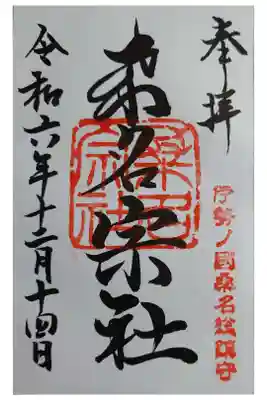 奉拝
伊勢ノ國桑名総鎮守
桑名宗社
桑名宗社
令和六年十二月十四日